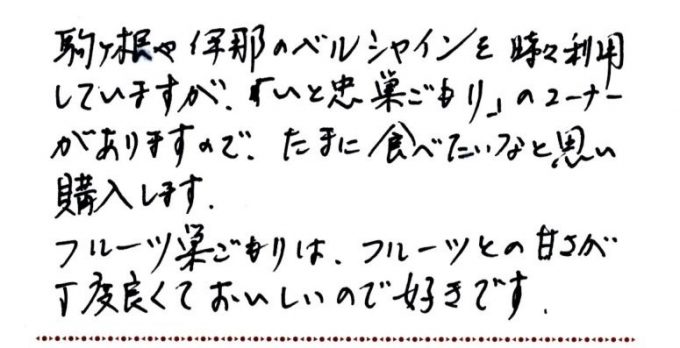 駒ヶ根や伊那のベルシャインを時々利用
していますが、「いと忠巣ごもり」のコーナー
がありますので、たまに食べたいなと思い
購入します.
フルーツ巣ごもりは、フルーツとの甘さが
丁度良くておいしいので好きです.